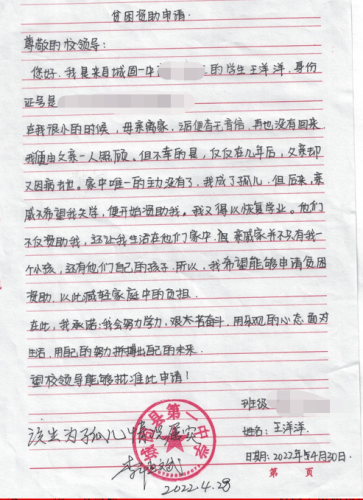 贫困资助申请
尊敬的校领导:
您好,我是来自城固一中 的学生王洋洋,身份
证号是
在我很小的时候,母亲离家,之后便杳无音信,再也没有回来
我便由父亲一人照顾。但不幸的是,仅仅在几年后,父亲却
又因病去世。家中唯一的主力没有了,我成了孤儿,但后来,亲
戚不希望我失学,便开始资助我。我又得以恢复学业。他们
不仅资助我,还让我生活在他们家中,但亲戚家并不只有我一
个小孩,还有他们自己的孩子。所以,我希望能够申请贫困
资助,以此减轻家庭中的负担.
在此,我承诺:我会努力学习,艰苦奋斗,用乐观的心态面对
生活,用自己的努力拼搏出自己的未来.
望校领导能够批准此申请!
班级
该生为孤儿情况属实
姓名:王洋洋.
日期:2022年4月30日.
2022.4.28
城固县第一中学
第 页